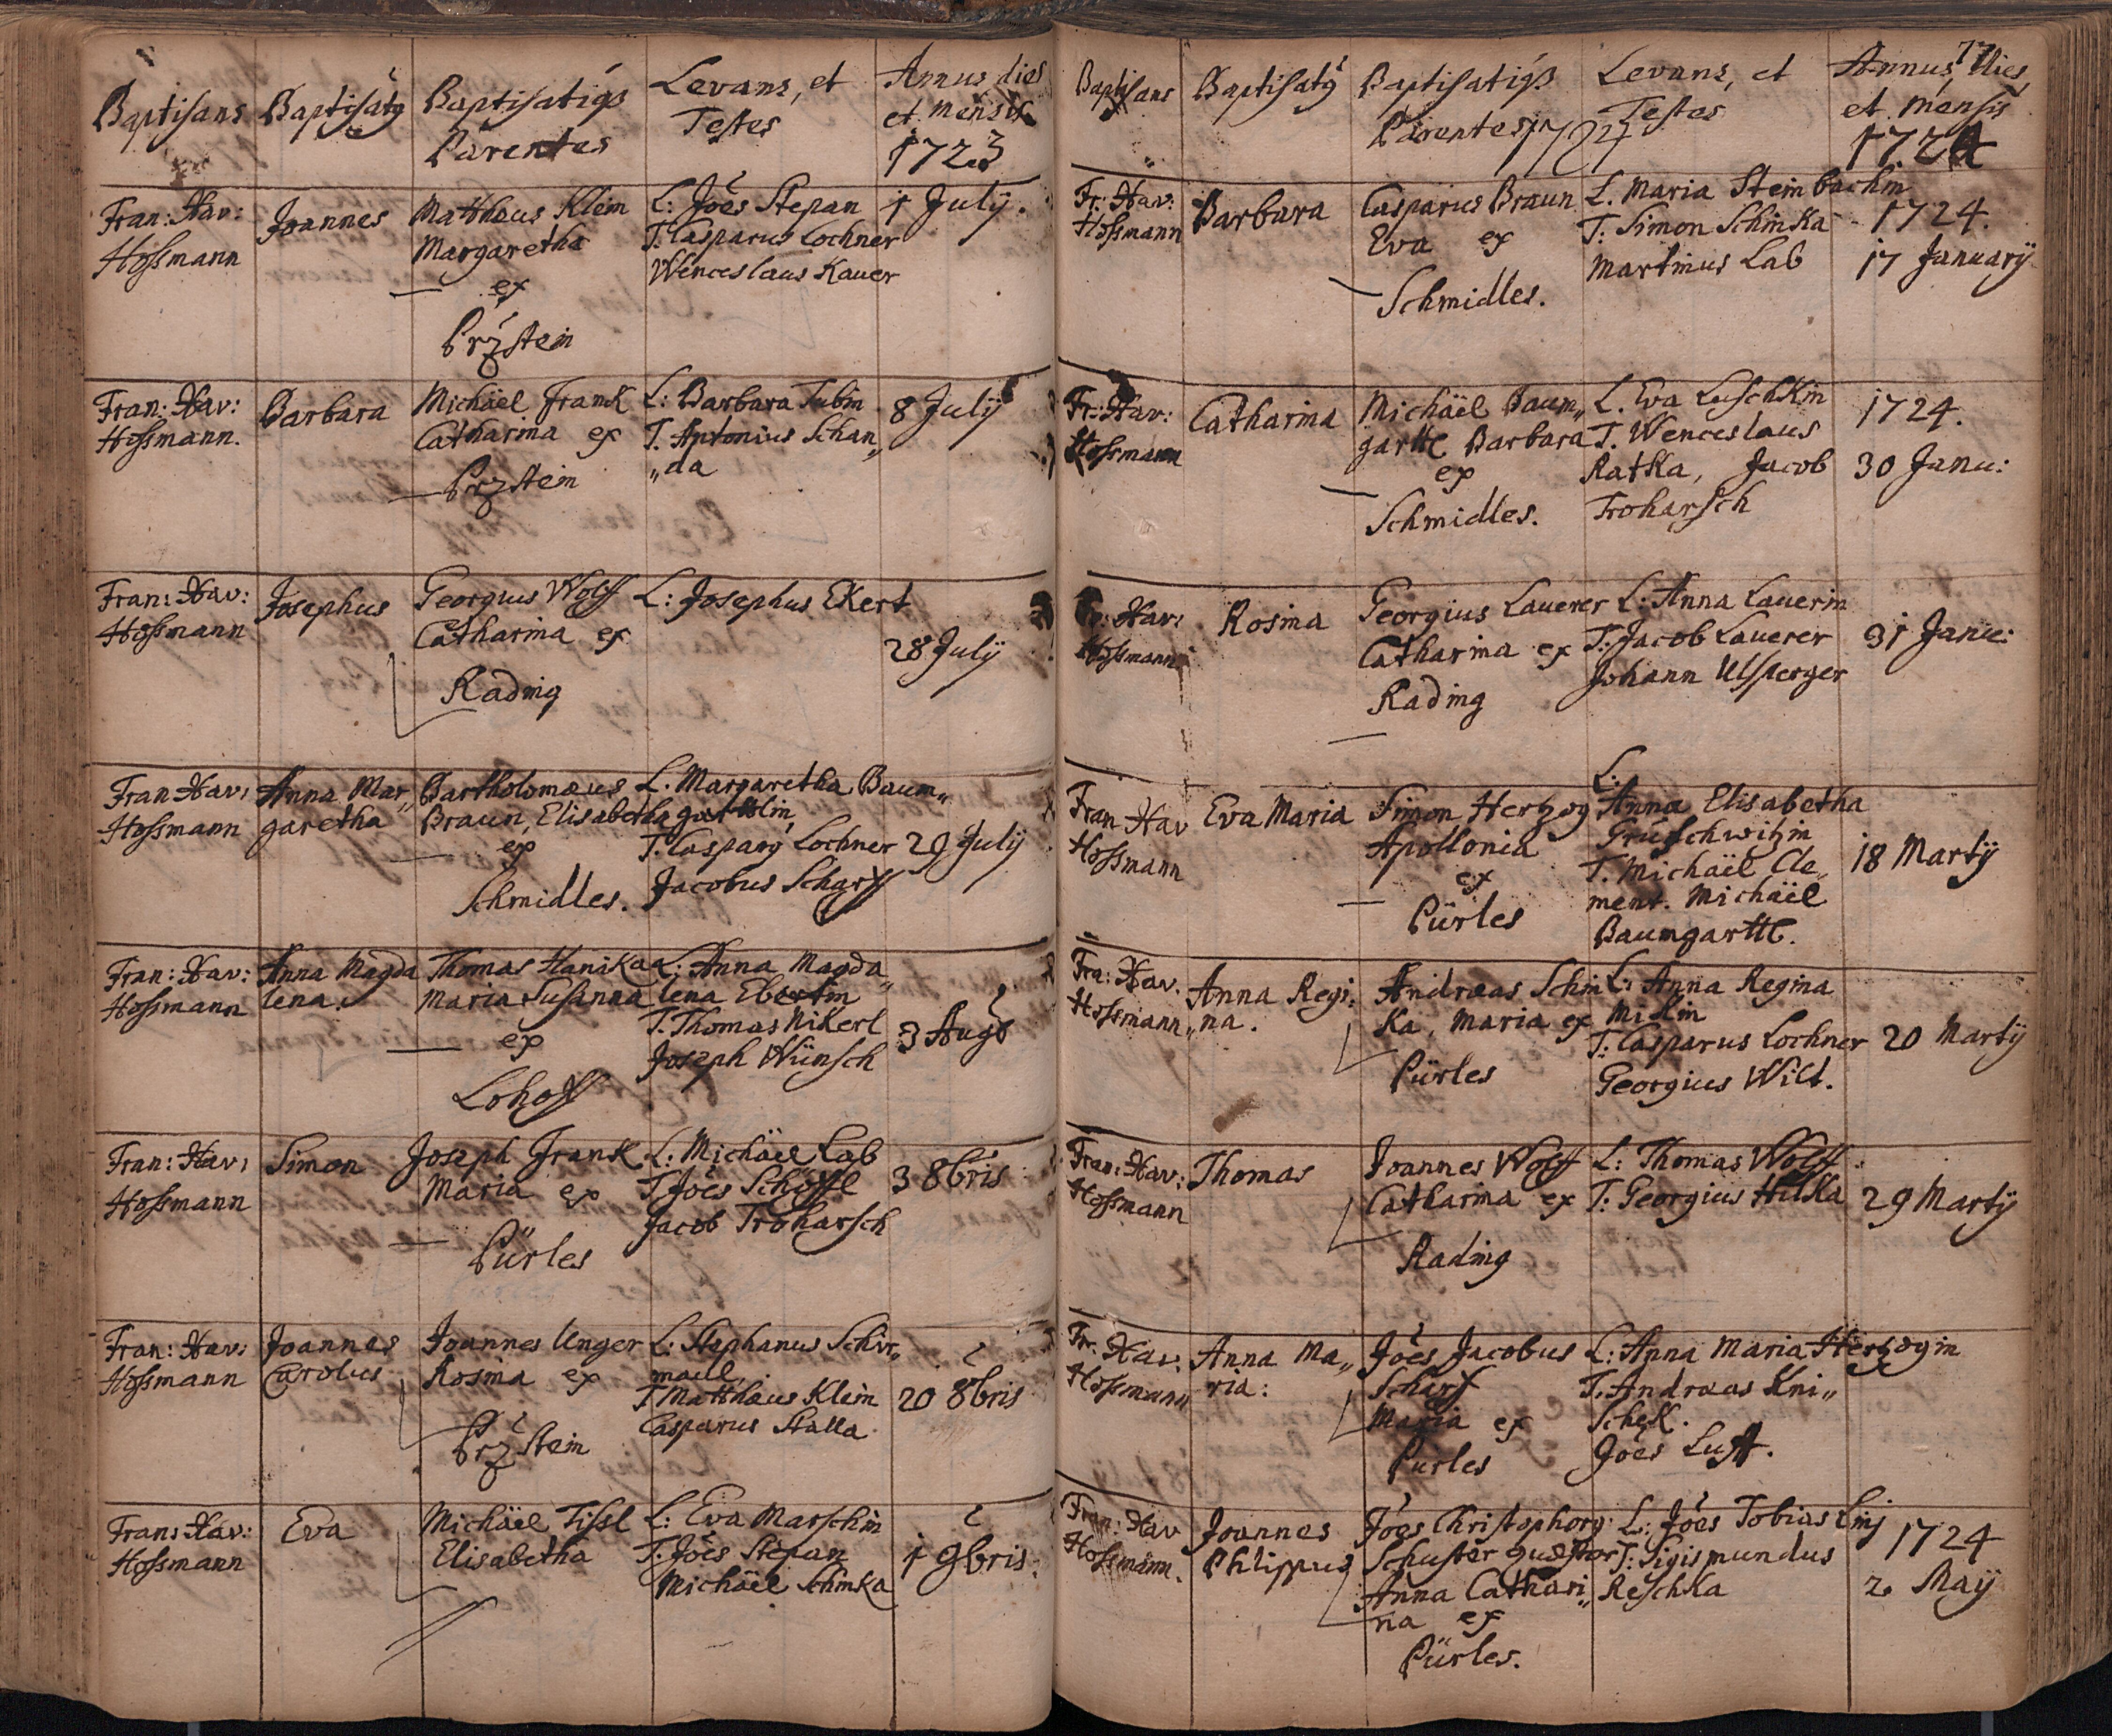 Baptisans
Baptisatg
Baptisatiqß
Parentes
Levans, et
Testes
Annus, dies
et mensis
1723
Fran: Xav:
Hossmann
Joannes
Matthæus Klein
Margaretha
ex
Przstein
L: Joes Stepan
T. Casparus Lochner
Wenceslaus Kauer
1 July.
Fran: Xav:
Hossmann.
Barbara
Michäel Frank
Catharina ex
Przstein
L: Barbara Tubin
T. Antonius Schan„
„da
8 July
Fran: Xav:
Hossmann
Josephus
Georgius Wolff
Catharina ex
Rading
L: Josephus Ekert
28 July
Fran Xav:
Hossmann
Anna Mar„
garetha
Bartholomæus
Braun, Elisabetha
ex
Schmidles.
L. Margaretha Baum„
garttlin
T. Casparg Lochner
Jacobus Scharff
29 July
Fran: Xav:
Hossmann
Anna Magda
lena.
Thomas Hanika
Maria Susanna
ex
Lohoff
L: Anna Magda„
lena Ebertin
T. Thomas Nikerl
Joseph Wünsch
3 Aug
Fran: Xav:
Hossmann
Simon
Joseph Frank
Maria ex
Pürles
L: Michäel Lab
T. Joes Schöffl
Jacob Troharsch
3 8bris
Fran: Xav:
Hossmann
Joannes
Carolus
Joannes Unger
Rosina ex
Przstein
L: Stephanus Schir„
madl
T. Matthæus Klein
Casparus Stalla
20 8bris
Fran: Xav:
Hossmann
Eva
Michäel Fissl
Elisabetha
L: Eva Marschin
T. Joes Stepan
Michäel Schinka
1 9bris.
77
Baptisans
Baptisatg
Baptisatiqß
Parentes 1724
Levans, et
Testes
Annus, dies
et mensis
1724
Fr: Xav:
Hossmann
Barbara
Casparus Braun
Eva ex
Schmidles.
L. Maria Steinbachin
T: Simon Schinka
Martinus Lab
1724.
17 January
Fr: Xav:
Hossmann
Catharina
Michäel Baum„
garttl Barbara
ex
Schmidles.
L. Eva Luschkin
T. Wenceslaus
Ratka, Jacob
Troharsch
1724.
30 Janu:
Fr: Xav:
Hossmann
Rosina
Georgius Lauerer
Catharina ex
Rading
L: Anna Lauerin
T: Jacob Lauerer
Johann Ulsperger
31 Janu:
Fran Xav
Hossmann
Eva Maria
Simon Hertzog
Apollonia
ex
Pürles
L:
Anna Elisabetha
Gruschwitzin
T. Michäel Cle„
ment. Michäel
Baumgarttl.
18 Marty
Fra: Xav.
Hossmann
Anna Regi:
„na.
Andræas Schin
Ka, Maria ex
Pürles
L: Anna Regina
Miklin
T: Casparus Lochner
Georgius Wilt.
20 Marty
Fran: Xav:
Hossmann
Thomas
Joannes Wolff
Catharina ex
Rading
L: Thomas Wolff
T: Georgius Hilka
29 Marty
Fr: Xav.
Hossmann
Anna Ma„
ria:
Joes Jacobus
Scharf
Maria ex
Pürles
L: Anna Maria Hertzogin
T. Andræas Kni„
schek.
Joes Lust.
Fran: Xav
Hossmann.
Joannes
Philippus
Joes Christophorg
Schuster quæstor
Anna Cathari„
na ex
Pürles.
L: Joes Tobias Linj
T: Sigismundus
Reschka
1724
2. May